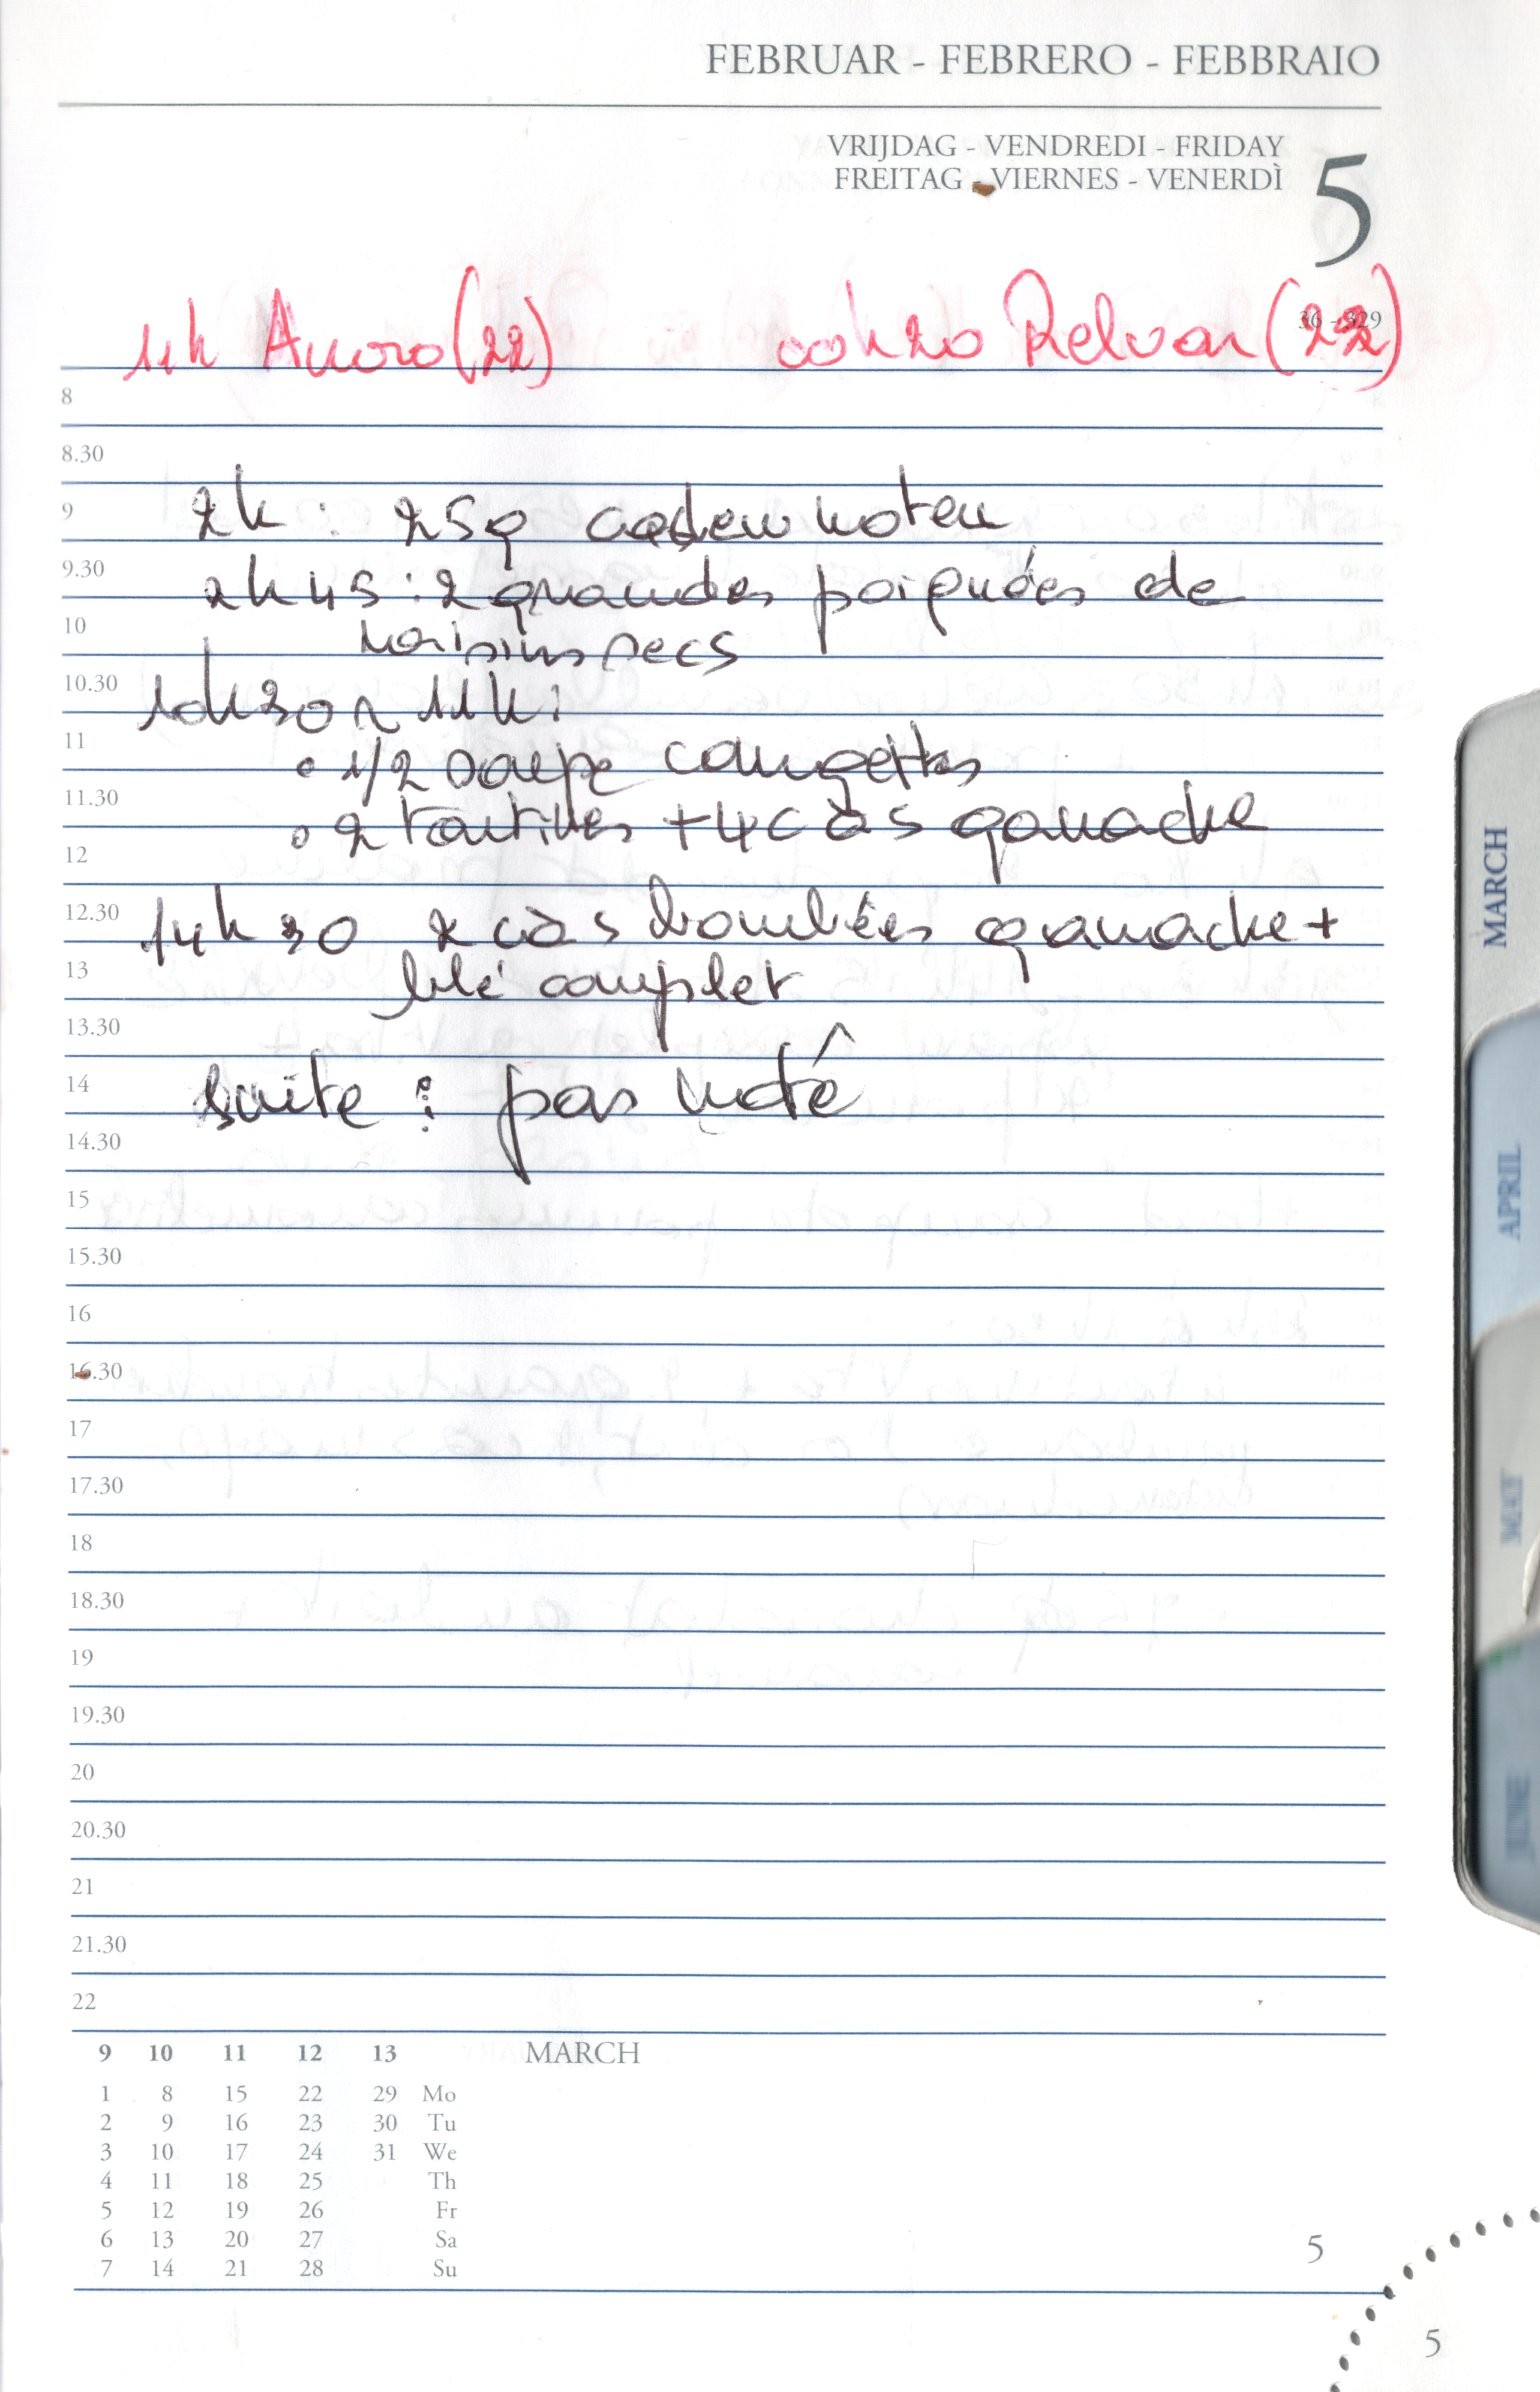 FEBRUAR - FEBRERO - FEBBRAIO
VRIJDAG - VENDREDI - FRIDAY
FREITAG - VIERNES - VENERDÌ
5
36 - 329
11h (22) 00h20 (22)
8
8.30
9 2h : 25g noten
9.30 2h45 : 2 grandes poignées de
10 raisins secs
10.30 10h30 à 11h :
11 • 1/2 soupe courgettes
11.30 • 2 tartines + 4 càs ganache
12
12.30 14h30 2 càs bombées ganache +
13 blé complet
13.30
14 suite : pas noté
14.30
15
15.30
16
16.30
17
17.30
18
18.30
19
19.30
20
20.30
21
21.30
22
9 10 11 12 13 MARCH
1 8 15 22 29 Mo
2 9 16 23 30 Tu
3 10 17 24 31 We
4 11 18 25 Th
5 12 19 26 Fr
6 13 20 27 Sa
7 14 21 28 Su
5
5
MARCH
APRIL
MAY
JUNE